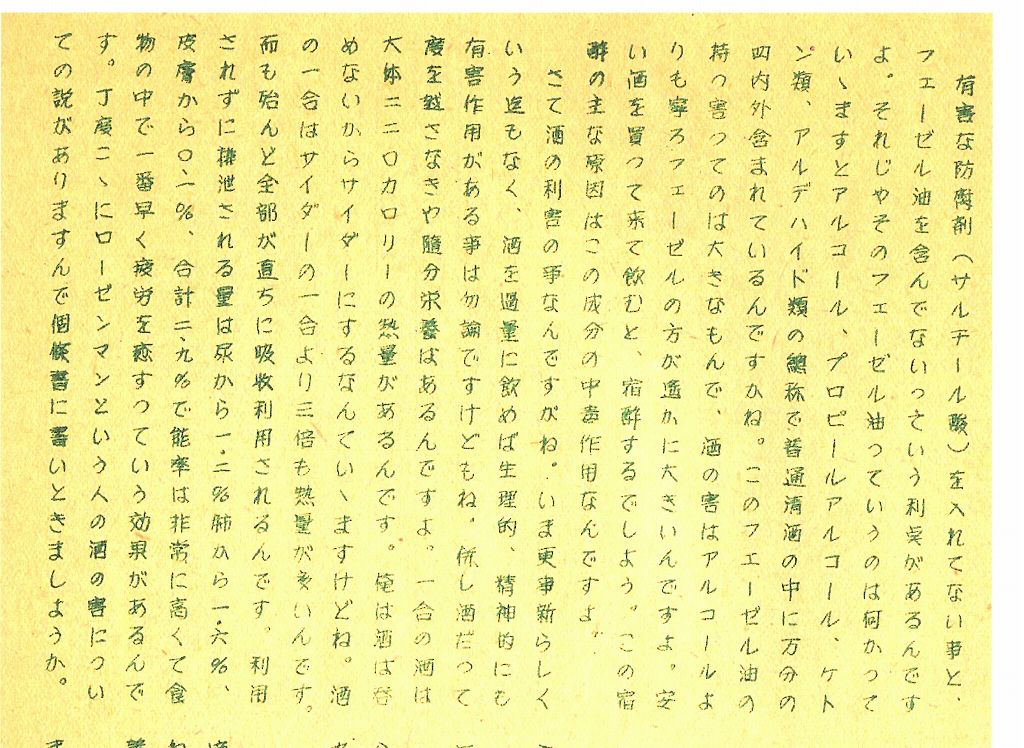 有害な防腐剤（サルチール酸）を入れてない事と、
フェーゼル油を含んでないっていう利点があるんです
よ。それじやそのフェーゼル油っていうのは何かって
いゝますとアルコール、プロピールアルコール、ケト
ン類、アルデハイド類の總称で普通清酒の中に万分の
四内外含まれているんですがね。このフェーゼル油の
持つ害ってのは大きなもんで、酒の害はアルコールよ
りも寧ろフェーゼルの方が遙かに大きいんですよ。安
い酒を買って来て飲むと、宿酔するでしよう。この宿
酔の主な原因はこの成分の中毒作用なんですよ。
さて酒の利害の事なんですがね。いま更事新らしく
いう迄もなく、酒を過量に飲めば生理的、精神的にも
有害作用がある事は勿論ですけどもね。併し酒だって
度を越さなきや随分栄養はあるんですよ。一合の酒は
大体二二〇カロリーの熱量があるんです。俺は酒は呑
めないからサイダーにするなんていゝますけどね。酒
の一合はサイダーの一合より三倍も熱量が多いんです。
而も殆んど全部が直ちに吸收利用されるんです。利用
されずに排泄される量は尿から一・二％肺から一・六％、
皮膚から〇・一％、合計二・九％で能率は非常に高くて食
物の中で一番早く疲労を癒すっていう効果があるんで
す。丁度こゝにローゼンマンという人の酒の害につい
ての説がありますんで個條書に書いときましようか。